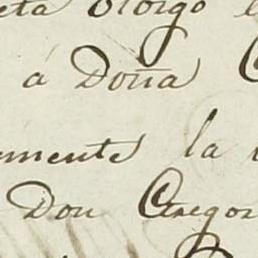 eta otorgo
á Doña
mente la
Don Gregor